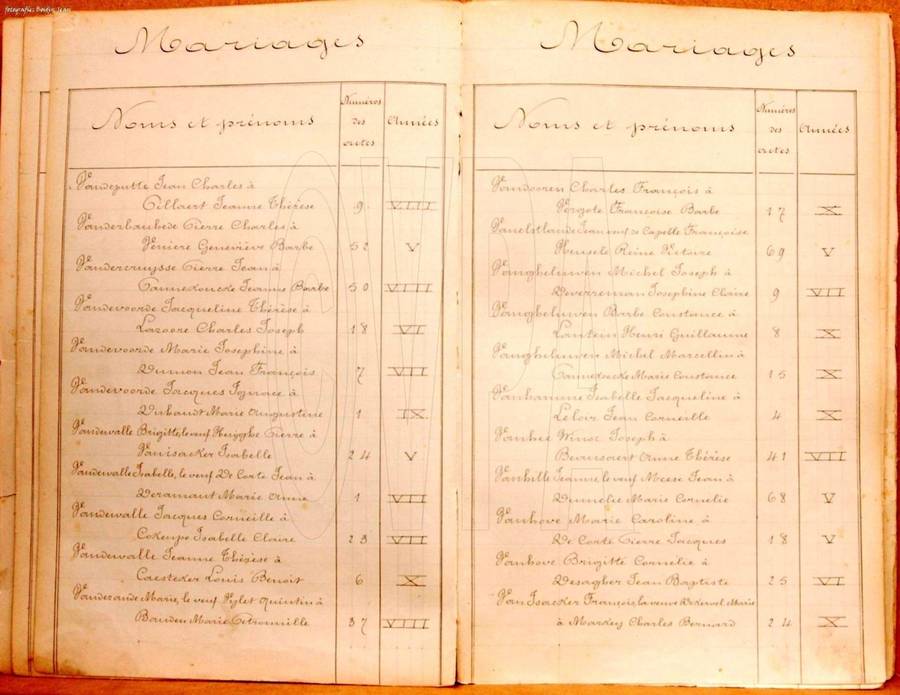 fotografie: Boutin Jean
Mariages
Noms et prénoms
Numéros des actes
Années
Vandeputte Jean Charles à
Gillaert Jeanne Thérèse 9 VIII
Vanderbauhede Pierre Charles à
Veniere Geneviève Barbe 52 V
Vandercruysse Pierre Jean à
Cannedoncke Jeanne Barbe 50 VIII
Vandevoorde Jacqueline Thérèse à
Lazoore Charles Joseph 18 VI
Vandevoorde Marie Josephine à
Dumon Jean François 7 VII
Vandevoorde Jacques Ignace à
Duhandt Marie Augustine 1 IX
Vandewalle Brigitte, le veuf Huyghe Pierre à
Vanisacker Isabelle 24 V
Vandewalle Isabelle, le veuf De Corte Jean à
Deramaut Marie Anne 1 VII
Vandewalle Jacques Corneille à
Cokenpo Isabelle Claire 23 VII
Vandewalle Jeanne Thérèse à
Caesteker Louis Benoit 6 X
Vandezande Marie, le veuf Pylet Quintin à
Bauden Marie Petronnille 37 VIII
Mariages
Noms et prénoms
Numéros des actes
Années
Vandooren Charles François à
Vergote Françoise Barbe 17 X
Vanelstlande Jean veuf de Capelle Françoise
Heusele Reine Victoire 69 V
Vangheluwen Michel Joseph à
Deverreman Josephine Claire 9 VII
Vangheluwen Barbe Constance à
Lantein Henri Guillaume 8 X
Vangheluwen Michel Marcellin à
Cannedocke Marie Constance 15 X
Vanhamme Isabelle Jacqueline à
Leloir Jean Corneille 4 X
Vanhee Winoc Joseph à
Beunsaert Anne Thérèse 41 VII
Vanhille Jeanne, le veuf Meese Jean à
Dumelie Marie Cornelie 68 V
Vanhove Marie Caroline à
De Corte Pierre Jacques 18 V
Vanhove Brigitte Cornelie à
Desagher Jean Baptiste 25 VI
Van Isacker François, la veuve Dekervel Marie
à Markey Charles Bernard 24 X